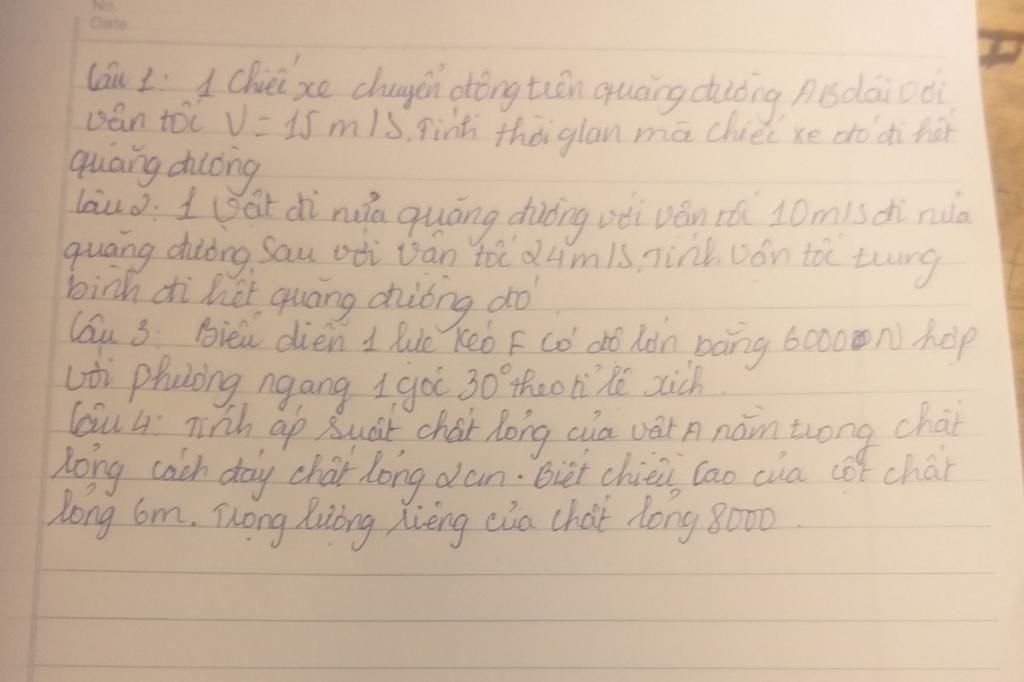 No.
Date
Câu 1: 1 Chiếc xe chuyển động trên quãng đường AB dài với
vận tốc V = 15 m/s. Tính thời gian mà chiếc xe đó đi hết
quãng đường
Câu 2: 1 vật đi nửa quãng đường với vận tốc 10m/s đi nửa
quãng đường sau với vận tốc 24m/s. Tính vận tốc trung
bình đi hết quãng đường đó
Câu 3: Biểu diễn 1 lực kéo F có độ lớn bằng 60000N hợp
với phương ngang 1 góc 30° theo tỉ lệ xích.
Câu 4: Tính áp suất chất lỏng của vật A nằm trong chất
lỏng cách đáy chất lỏng 2cm. Biết chiều cao của cột chất
lỏng 6m. Trọng lượng riêng của chất lỏng 8000.